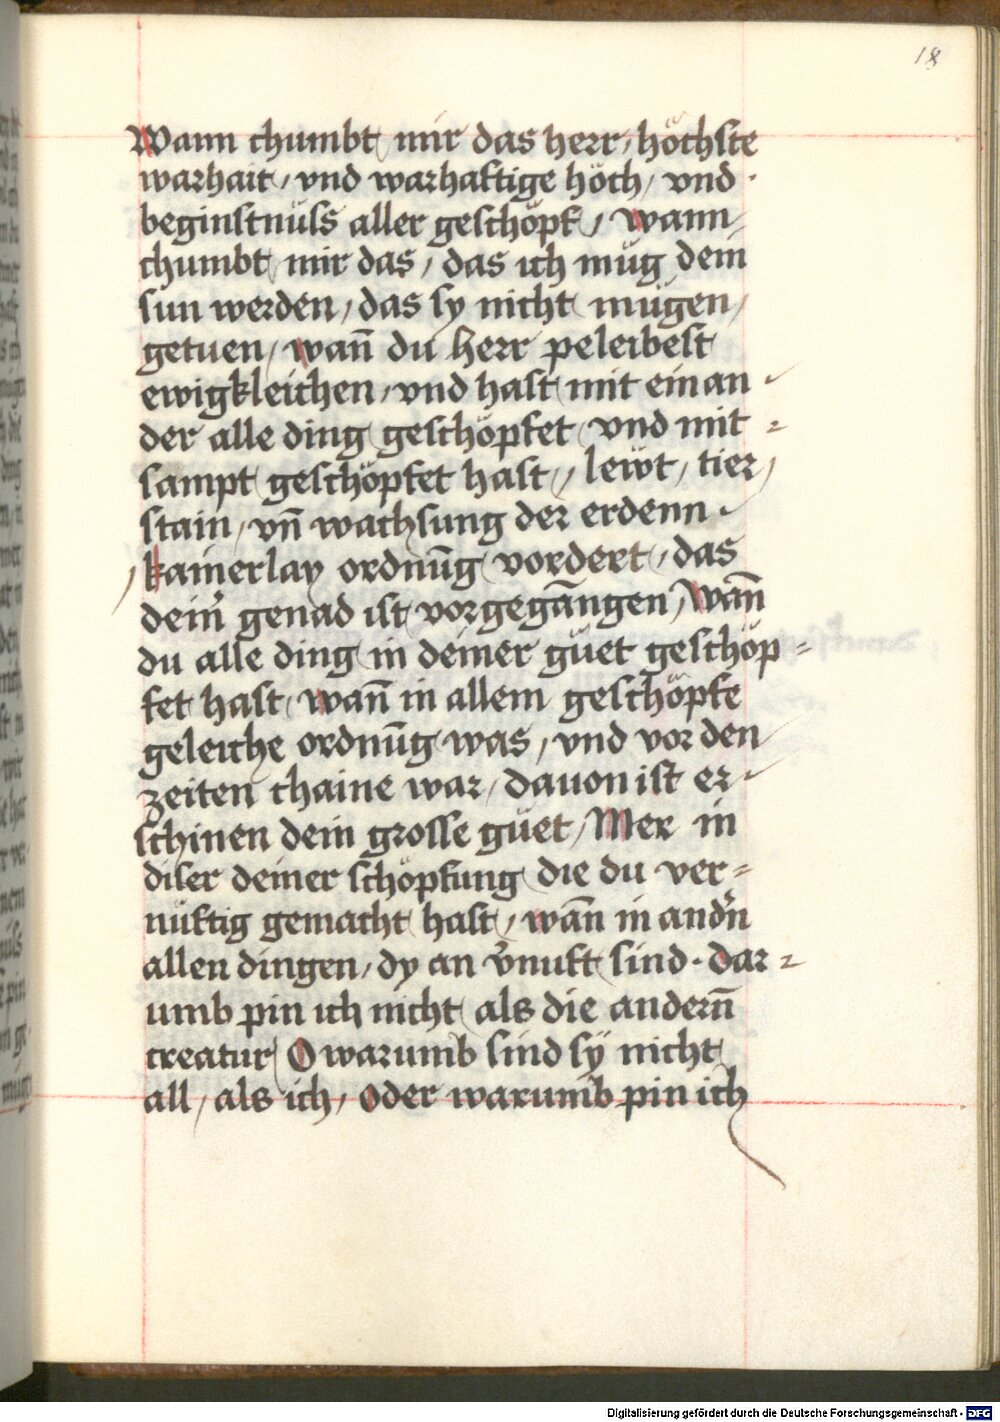 18
Wann chumbt mir das herr / höchste
warhait / vnd warhaftige höch / vnd
beginstnüss aller geschöpf / wann
chumbt mir das / das ich müg dein
sun werden / das sy nicht mügen /
getuen / wan̄ du herr peleibest
ewigkleichen / vnd hast mit einan
der alle ding geschöpfet vnd mit =
sampt geschöpfet hast / lewt / tier /
stain / vn̄ wachsung der erdenn
kainerlay ordnūg vordert / das
dein genad ist vorgegāngen / Wan̄
du alle ding in deiner güet geschöp =
fet hast / wan̄ in allem geschöpfe
geleiche ordnūg was / vnd vor den
zeiten chaine war / dauon ist er
schinen dein grosse güet / Mer in
diser deiner schöpfung die du ver =
nüftig gemacht hast / wān in andn̄
allen dingen / dy an v̄nuft sind · dar =
umb pin ich nicht als die andern̄
creatur / O warumb sind sÿ nicht
all / als ich / oder warumb pin ich
Digitalisierung gefördert durch die Deutsche Forschungsgemeinschaft - DFG